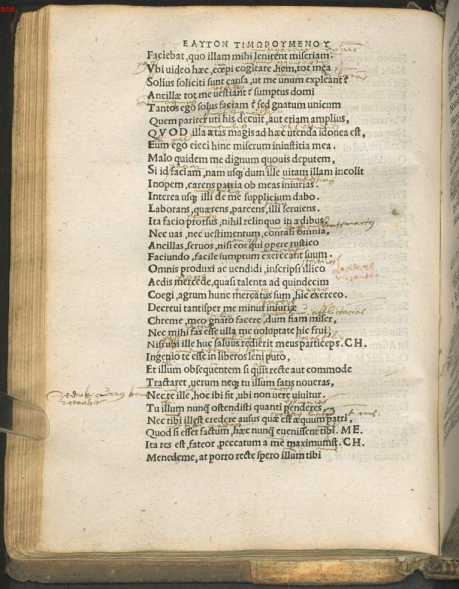 ΕΑΥΤΟΝ ΤΙΜΩΡΟΥΜΕΝΟΥ
Faciebat, quo illam mihi lenirent miseriam.
Vbi video hæc, cœpi cogitare, hem, tot mea
Solius soliciti sunt causa, ut me unum expleant?
Ancillæ tot me uestiant? sumptus domi
Tantos ego solus faciam? sed gnatum unicum
Quem pariter uti his decuit, aut etiam amplius,
QVOD illa ætas magis ad hæc utenda idonea est,
Eum ego eieci hinc miserum iniustitia mea.
Malo quidem me dignum quouis deputem,
Si id faciam, nam usq; dum ille uitam illam incolit
Inopem, carens patria ob meas iniurias.
Interea usq; illi de me supplicium dabo.
Laborans, quærens, parcens, illi seruiens.
Ita facio prorsus, nihil relinquo in ædibus,
Nec uas, nec uestimentum, conrasi omnia,
Ancillas, seruos, nisi eos qui opere rustico
Faciundo, facile sumptum exercerent suum.
Omnis produxi ac uendidi, inscripsi illico
Aedis mercede, quasi talenta ad quindecim
Coegi, agrum hunc mercatus sum, hic exerceo.
Decreui tantisper me minus iniuriæ
Chreme, meo gnato facere, dum fiam miser,
Nec mihi fas esse ulla me uoluptate hic frui,
Nisi ubi ille huc saluus redierit meus particeps. CH.
Ingenio te esse in liberos leni puto,
Et illum obsequentem si quis recte aut commode
Tractaret, uerum neq; tu illum satis noueras,
Nec te ille, hoc ibi fit, ubi non uere uiuitur.
Tu illum nunq̃ ostendisti quanti penderes,
Nec tibi ille est credere ausus quæ est æquum patri,
Quod si esset factum, hæc nunq̃ euenissent tibi. ME.
Ita res est, fateor, peccatum a me maximumst. CH.
Menedeme, at porro recte spero illum tibi